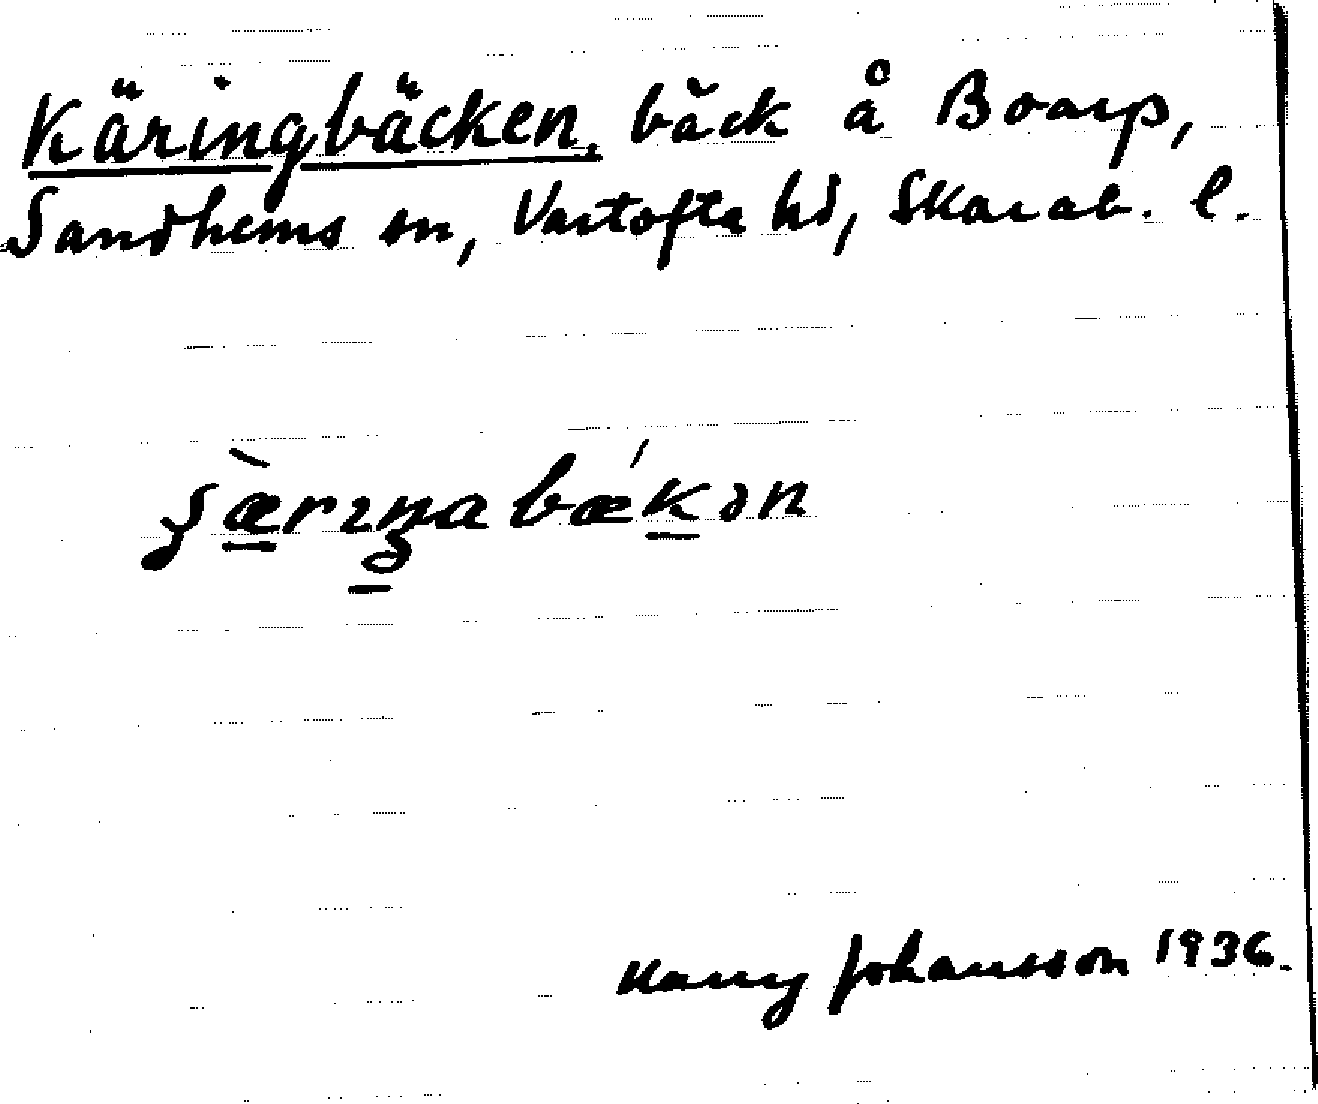 Käringbäcken, bäck å Boarp,
Sandhems sn, Vartofta hd, Skarab. l.
Harry Johansson 1936.